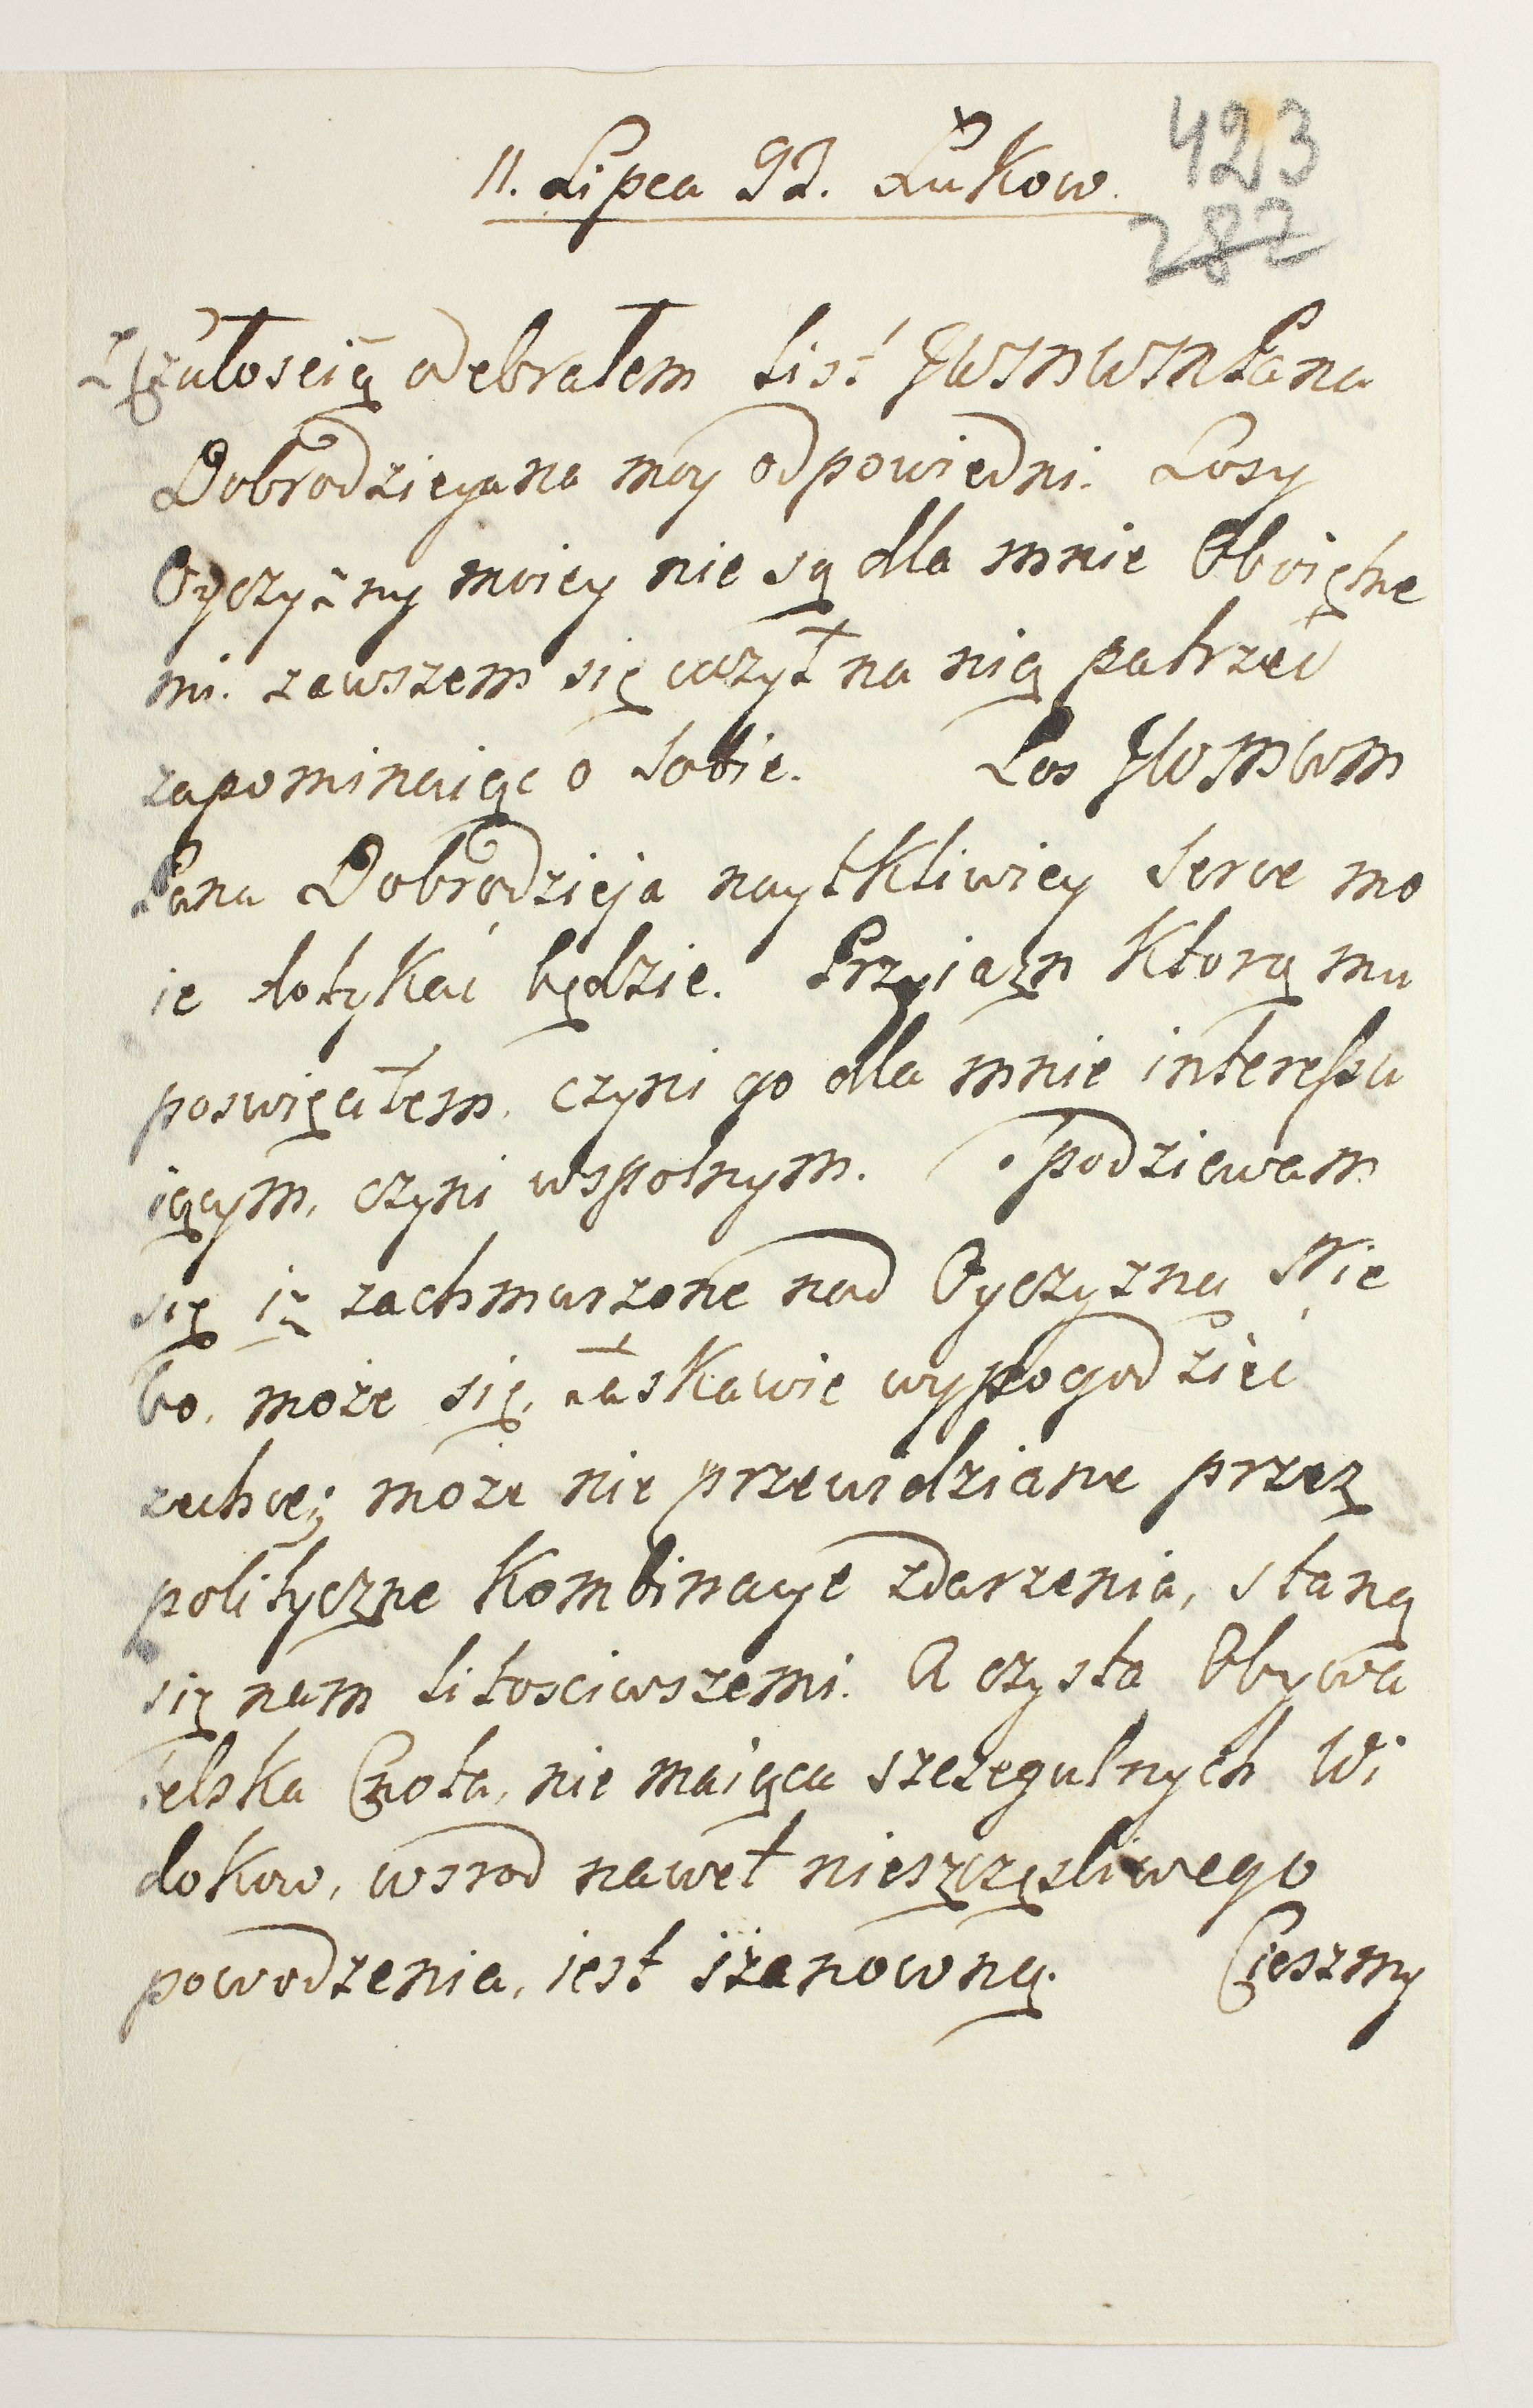 11. Lipca 93. Łukow.
423
282
Z Czułoscią odebrałem list JWWMWM Pana
Dobrodzieya na moy odpowiedni. Losy
Oyczyzny moiey nie są dla mnie Oboiętne
mi. zawszem się uczył na nią patrzeć
zapominaiąc o sobie. Los JWMWM
Pana Dobrodzieja naytkliwiey serce mo
ie dotykać będzie. Przyiazn ktorą mu
poswięciłem, czyni go dla mnie interessu
iącym, czyni wspolnym. Spodziewam
się iz zachmurzone nad Oyczyzną Nie
bo, może się łaskawie wypogodzić
zechce; może nie przewidziane przez
polityczne Kombinacye zdarzenia, staną
się nam litosciwszemi. A czysta Obywa
telska Cnota, nie maiąca szczegulnych Wi
dokow, wsrod nawet nieszczęsliwego
powodzenia, iest szanowną. Cieszmy